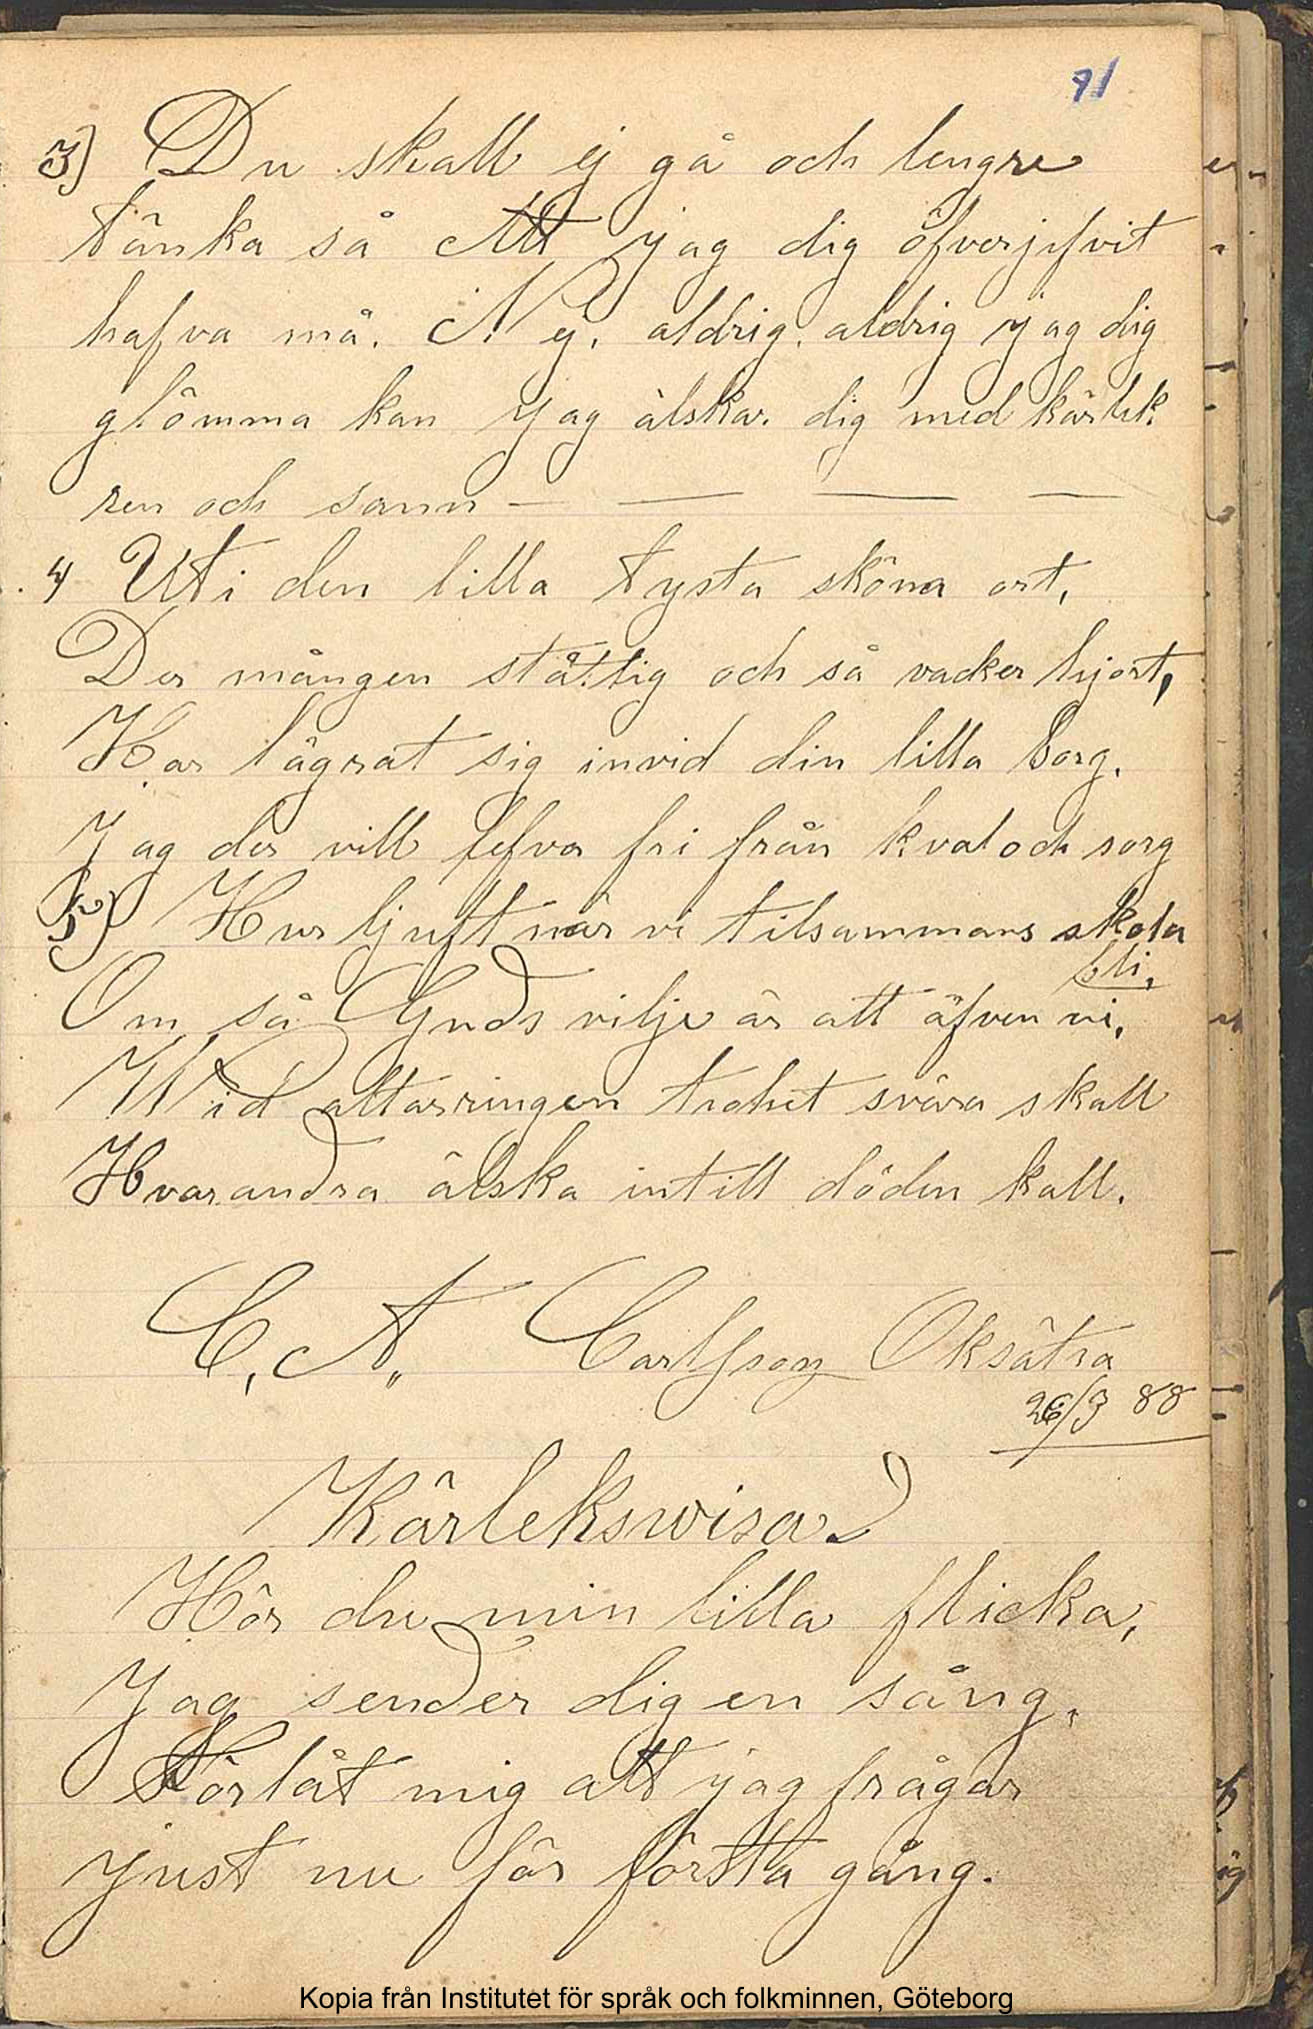 91
3) Du skall ej gå och lengre
tänka så Att jag dig öfverjifvit
hafva må. Nej, aldrig, aldrig jag dig
glömma kan Jag älskar dig med kärlek
ren och sann — — — —
4 Uti den lilla tysta sköna ort,
Der mången ståtlig och så vacker hjort,
Har lägrat sig invid din lilla borg.
Jag der vill lefva fri från kval och sorg
5) Hur ljuft når vi tilsammans skola
bli,
Om så Guds vilje är att äfven vi,
Wid altarringen trohet svära skall
Hvarandra älska intill döden kall.
C, A,, Carlsson Oksätra
26/3 88
Kärlekswisa
Hör du min lilla flicka,
Jag sender dig en sång,
Förlåt mig att jag frågar
just nu för första gång.
Kopia från Institutet för språk och folkminnen, Göteborg